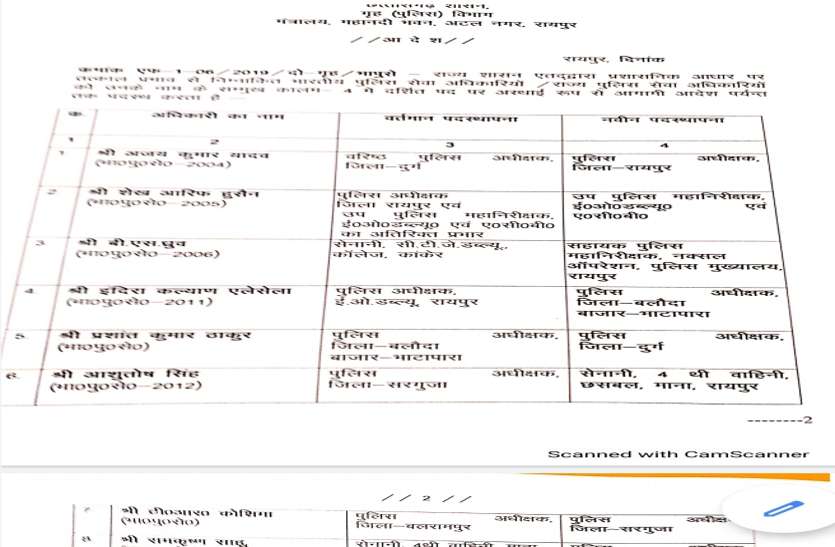 छत्तीसगढ़ शासन,
गृह (पुलिस) विभाग
मंत्रालय, महानदी भवन, अटल नगर, रायपुर
//आ दे श//
रायपुर, दिनांक
क्रमांक एफ-1-06/2019/दो-गृह/भापुसे – राज्य शासन एतद्द्वारा प्रशासनिक आधार पर
तत्काल प्रभाव से निम्नांकित भारतीय पुलिस सेवा अधिकारियों /राज्य पुलिस सेवा अधिकारियों
को उनके नाम के सम्मुख कालम- 4 में दर्शित पद पर अस्थाई रूप से आगामी आदेश पर्यन्त
तक पदस्थ करता है –
क. अधिकारी का नाम वर्तमान पदस्थापना नवीन पदस्थापना
1 2 3 4
1 श्री अजय कुमार यादव वरिष्ठ पुलिस अधीक्षक, पुलिस अधीक्षक,
(भा0पु0से0-2004) जिला-दुर्ग जिला-रायपुर
2 श्री शेख आरिफ हुसैन पुलिस अधीक्षक उप पुलिस महानिरीक्षक,
(भा0पु0से0-2005) जिला रायपुर एवं ई0ओ0डब्ल्यू0 एवं
उप पुलिस महानिरीक्षक, ए0सी0बी0
ई0ओ0डब्ल्यू0 एवं ए0सी0बी0
का अतिरिक्त प्रभार
3 श्री बी.एस.ध्रुव सेनानी, सी.टी.जे.डब्ल्यू. सहायक पुलिस
(भा0पु0से0-2006) कॉलेज, कांकेर महानिरीक्षक, नक्सल
ऑपरेशन, पुलिस मुख्यालय,
रायपुर
4. श्री इंदिरा कल्याण एलेसेला पुलिस अधीक्षक, पुलिस अधीक्षक,
(भा0पु0से0-2011) ई.ओ.डब्ल्यू, रायपुर जिला-बलौदा
बाजार-भाटापारा
5. श्री प्रशांत कुमार ठाकुर पुलिस अधीक्षक, पुलिस अधीक्षक,
(भा0पु0से0) जिला-बलौदा जिला-दुर्ग
बाजार-भाटापारा
6. श्री आशुतोष सिंह पुलिस अधीक्षक, सेनानी, 4 थी वाहिनी,
(भा0पु0से0-2012) जिला-सरगुजा छसबल, माना, रायपुर
--------2
Scanned with CamScanner
//2//
श्री टी0आर0 कोशिमा पुलिस अधीक्षक, पुलिस
(भा0पु0से0) जिला-बलरामपुर जिला-सरगुजा
8 श्री रामकृष्ण साहू, सेनानी, 4थी वाहिनी